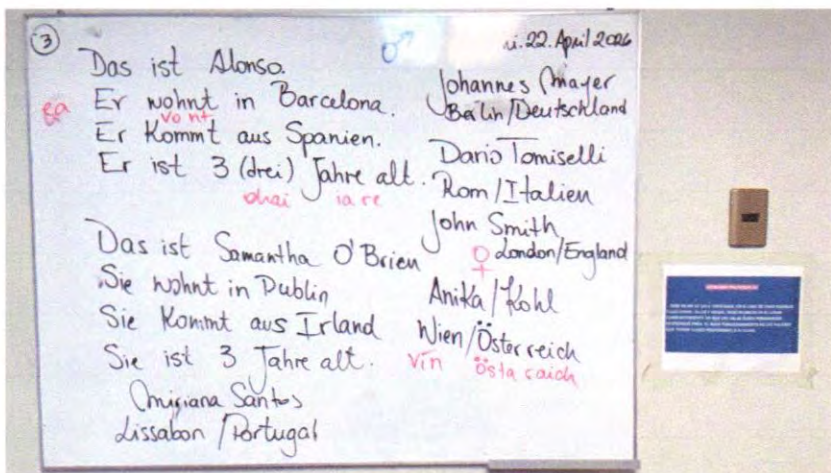 3
Das ist Alonso.
Er wohnt in Barcelona.
vo nt
Er Kommt aus Spanien.
Er ist 3 (drei) Jahre alt.
ia re
Das ist Samantha O'Brien
Sie wohnt in Dublin
Sie Kommt aus Irland
Sie ist 3 Jahre alt.
Santos
Lissabon / Portugal
♂
22. April 2026
Johannes Mayer
Berlin/Deutschland
Dario Tomiselli
Rom/Italien
John Smith
London/England
♀
Anika/Kohl
Wien/Österreich
vín östa raich